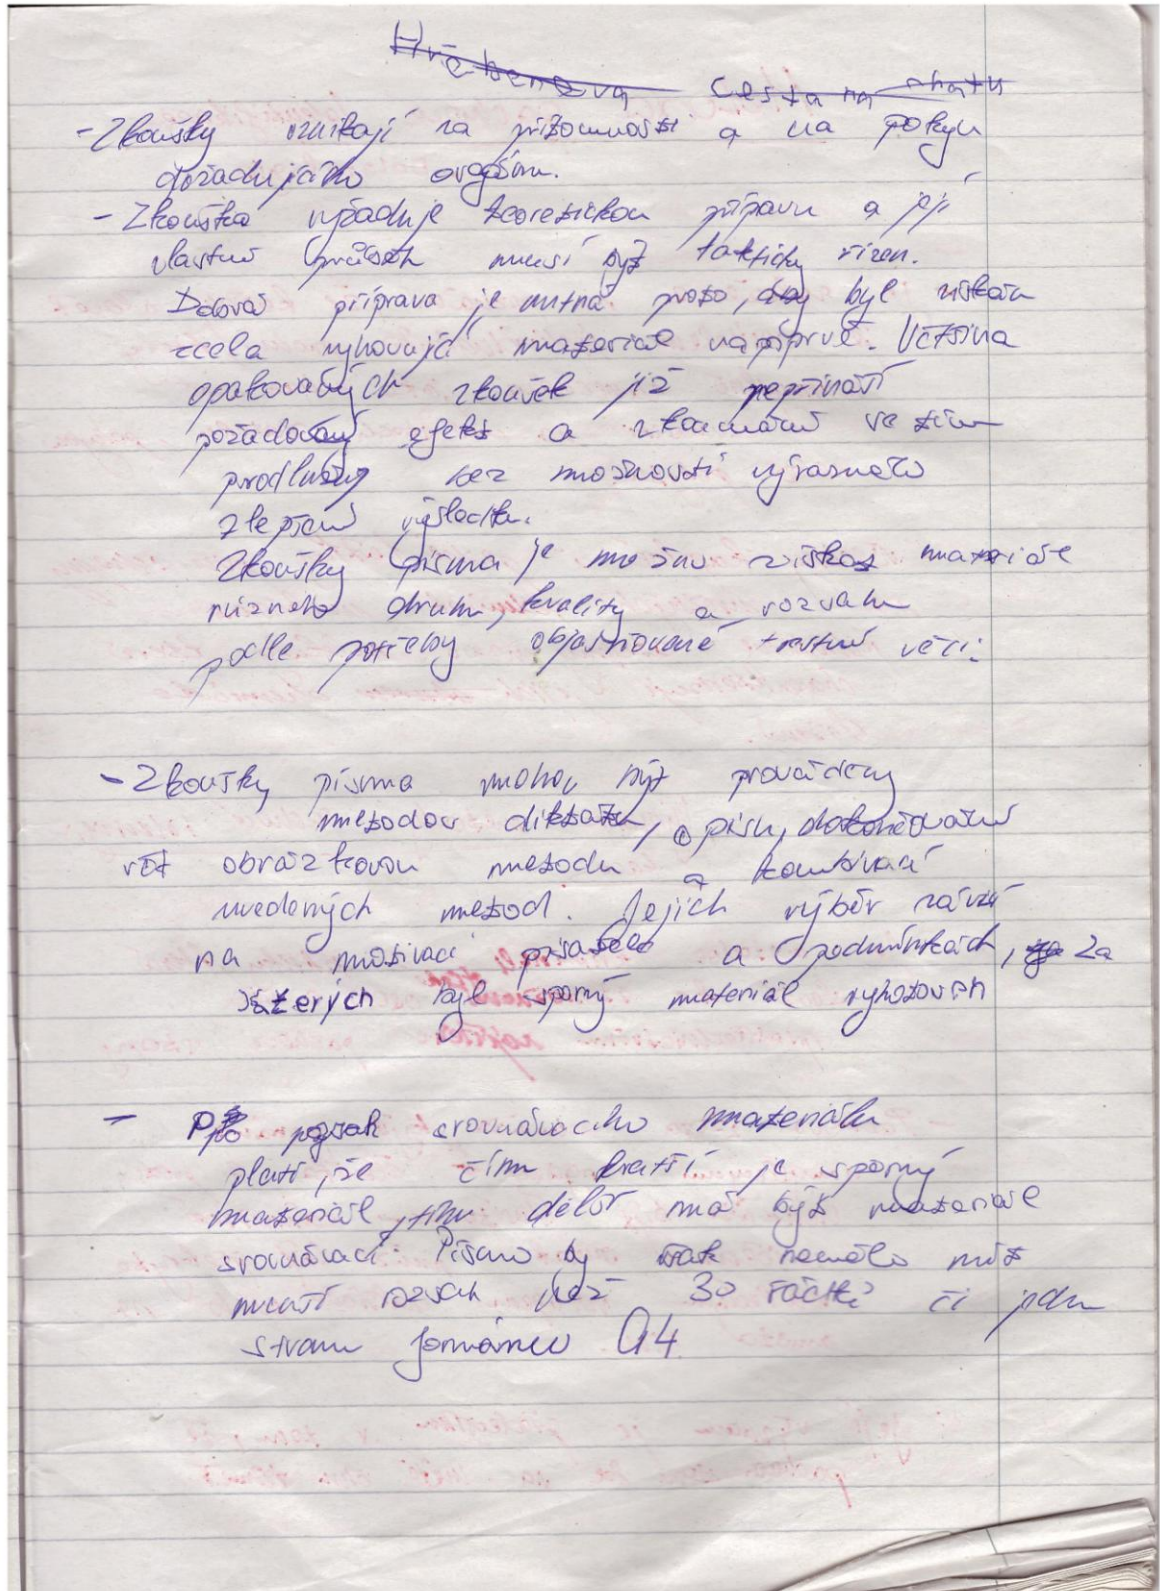 Hřebenova cesta na chatu
- Zkoušky vznikají za přítomnosti a na pokyn
dožadujícího orgánu.
- Zkouška vyžaduje teoretickou přípravu a její
vlastní průběh musí být takticky řízen.
Dobrá příprava je nutná proto, aby byl získán
zcela vyhovující materiál napoprvé. Většina
opakovaných zkoušek již nepřináší
požadovaný efekt a zkoumání se tím
prodlužuje bez možnosti výrazného
zlepšení výsledku.
Zkoušky písma je možno získat materiál
různého druhu, kvality a rozsahu
podle potřeby objasňované trestní věci.
- Zkoušky písma mohou být prováděny
metodou diktátu, opisu, dokončování
vět obrázkovou metodu a kombinací
uvedených metod. Jejich výběr závisí
na motivaci pisatele a podmínkách, za
kterých byl sporný materiál vyhotoven
- Pro rozsah srovnávacího materiálu
platí, že čím kratší je sporný
materiál, tím delší má být materiál
srovnávací. Písmo by však nemělo mít
menší rozsah než 30 řádků či jednu
stranu formátu A4